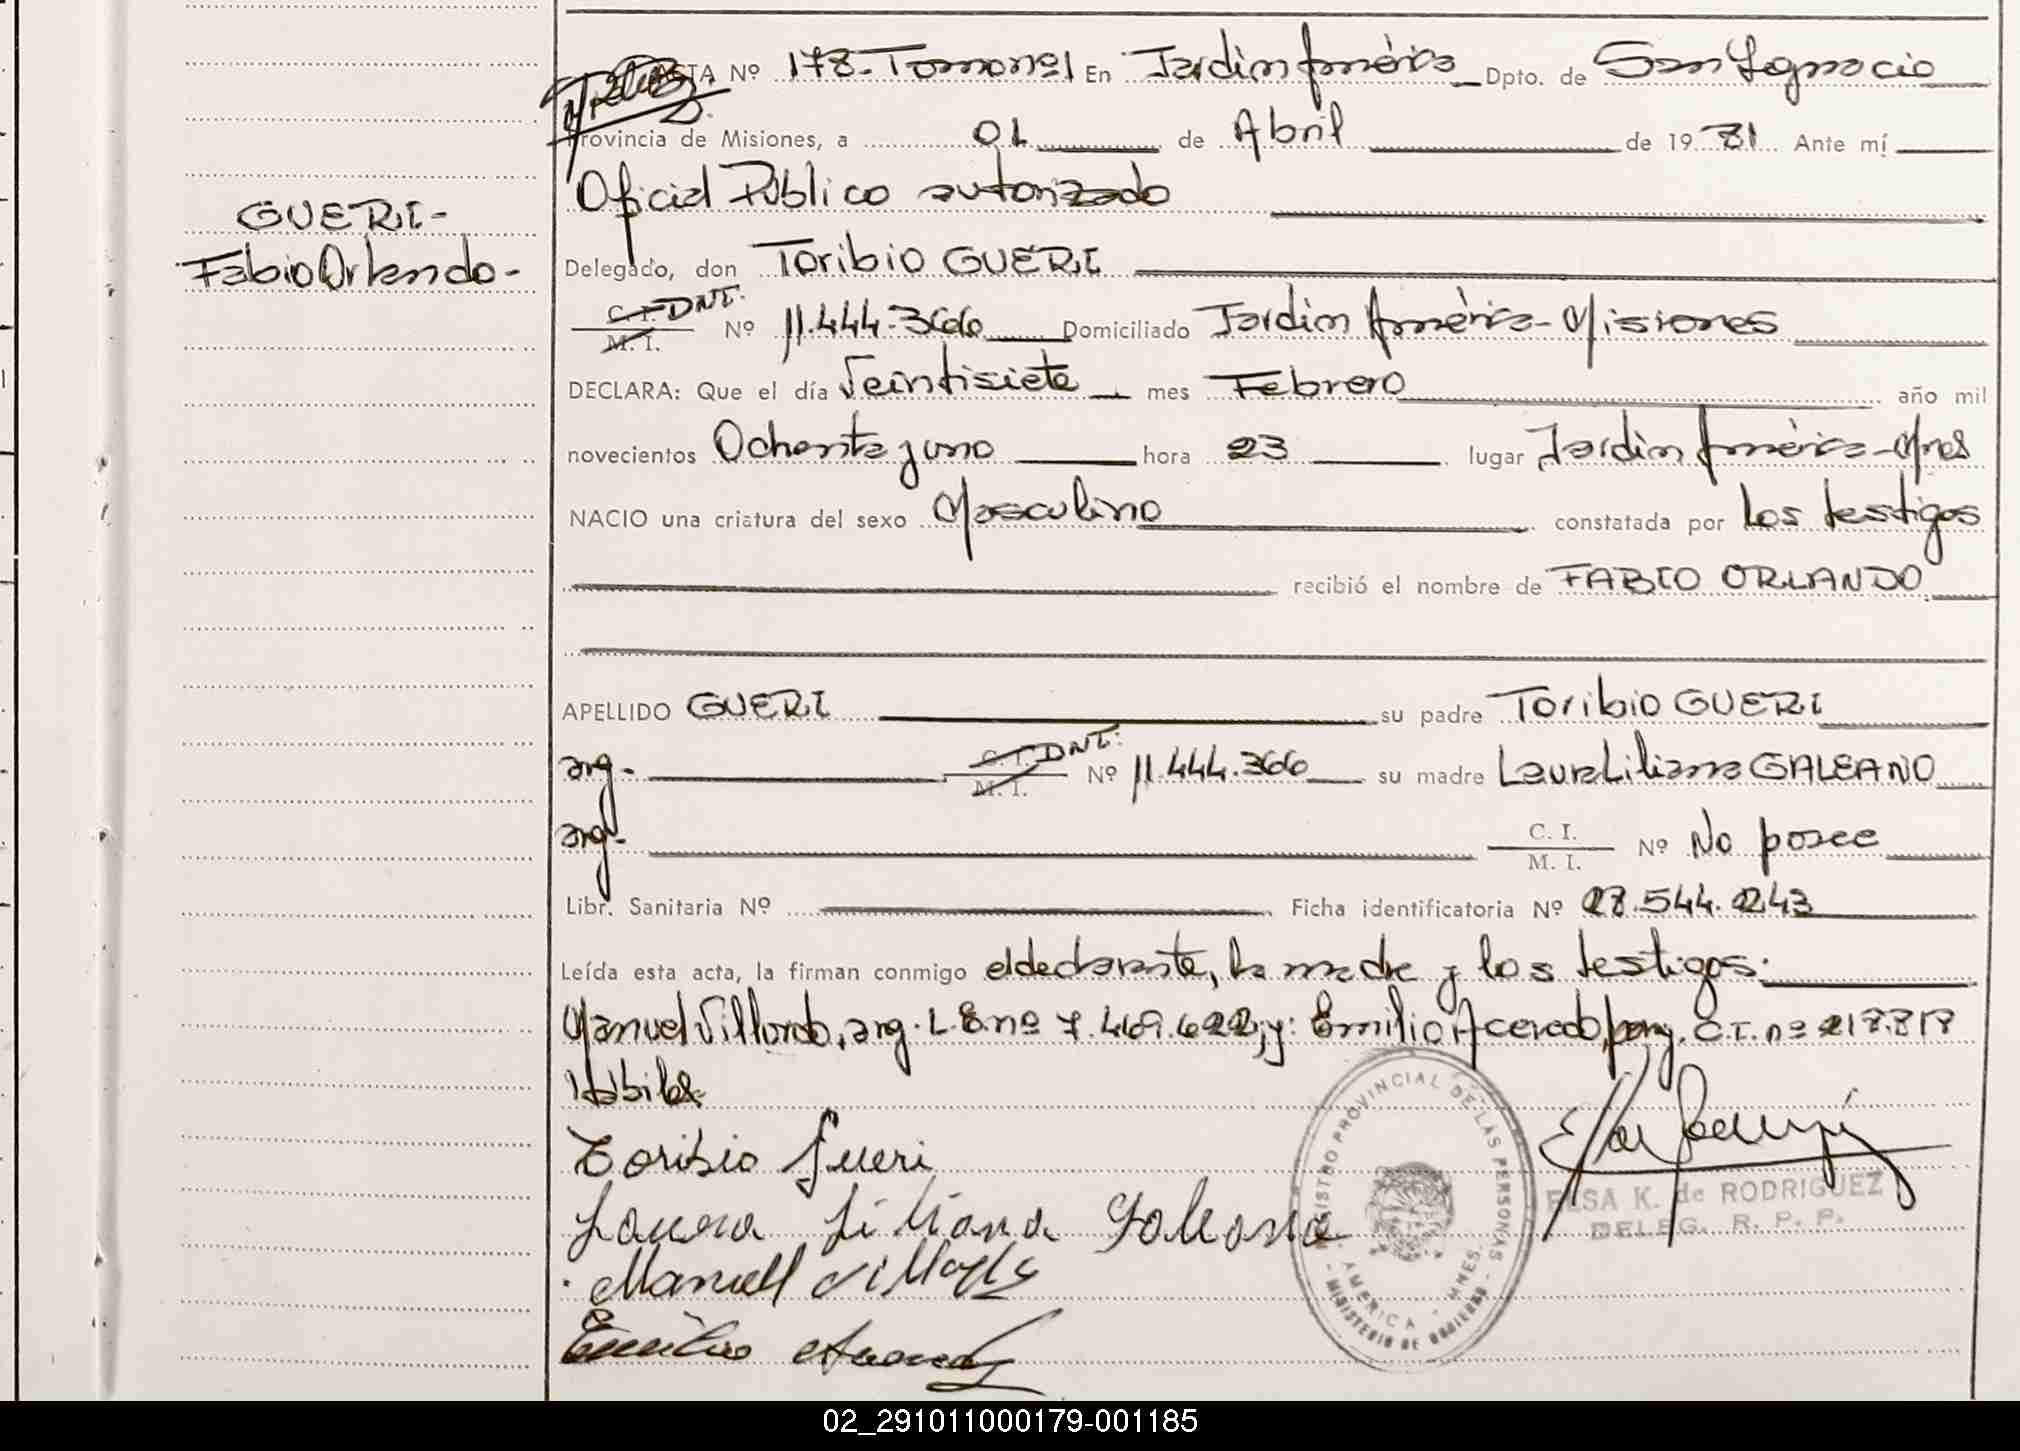 ACTA Nº 178-Tomo nº1 En Jardín América Dpto. de San Ignacio
Provincia de Misiones, a 01 de Abril de 1981 Ante mí
Oficial Público autorizado
GUERI-
Fabio Orlando-
Delegado, don Toribio GUERI
C. I. DNI. M. I. Nº 11.444.366 Domiciliado Jardín América-Misiones
DECLARA: Que el día Veintisiete mes Febrero año mil
novecientos Ochenta y uno hora 23 lugar Jardín América-Mnes
NACIO una criatura del sexo Masculino constatada por los testigos
recibió el nombre de FABIO ORLANDO
APELLIDO GUERI su padre Toribio GUERI
arg- C. I. DNI: M. I. Nº 11.444.366 su madre Laura Liliana GALEANO
arg- C. I. M. I. Nº No posee
Libr. Sanitaria Nº Ficha identificatoria Nº 28.544.243
Leída esta acta, la firman conmigo el declarante, la madre y los testigos:
Manuel Villordo, arg. L.E. nº 7.469.622; y: Emilio Acevedo, parg. C.I. nº 218.818
Hábiles
Toribio Gueri
Laura Liliana Galeano
Manuel
Emilio
REGISTRO PROVINCIAL DE LAS PERSONAS
AMERICA - MNES.
- MINISTERIO DE GOBIERNO -
ELSA K. de RODRIGUEZ
DELEG. R. P. P.
02_291011000179-001185